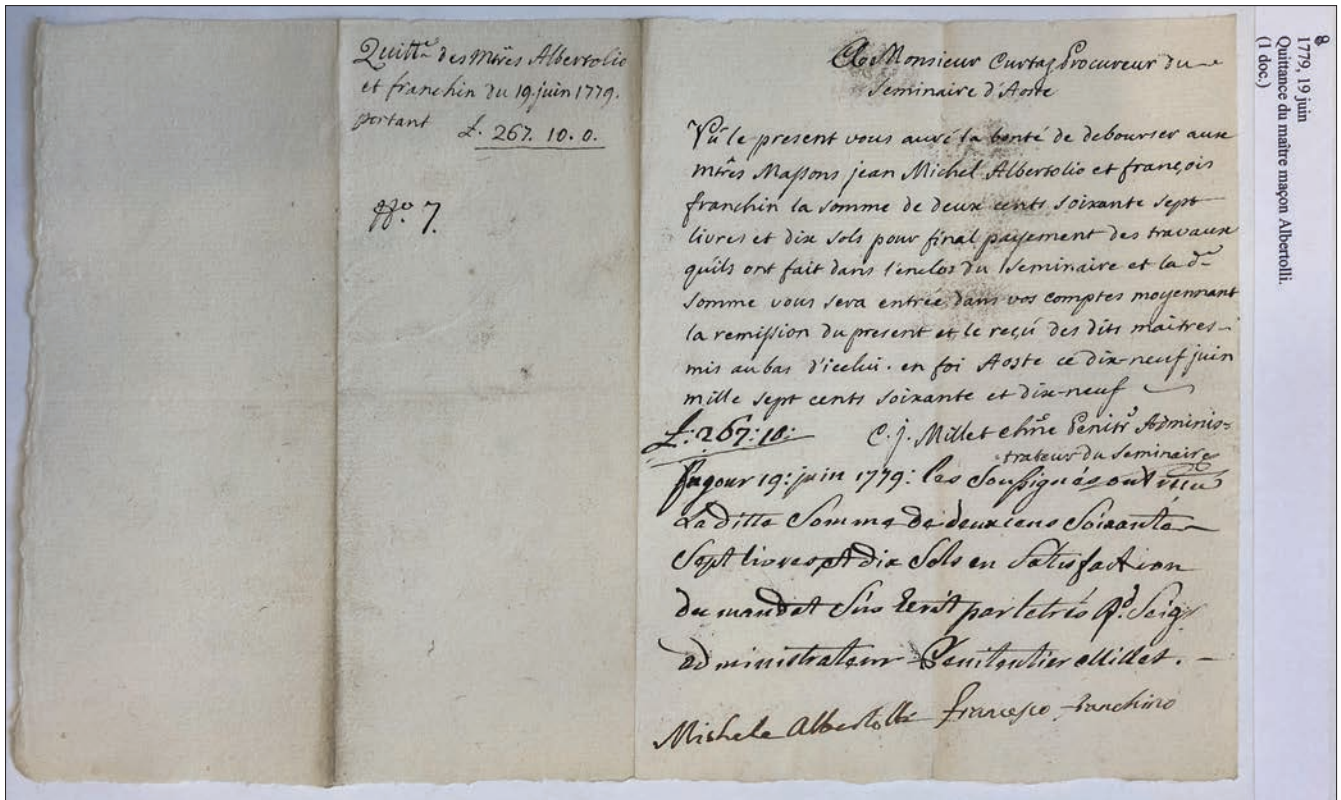 Quitt.ce des Mtres Albertolio
et franchin du 19. juin 1779.
portant £. 267. 10. 0.
N.o 7.
A Monsieur Curtaz Procureur du
Seminaire d'Aoste
Vû le present vous auré la bonté de debourser aux
mtres Massons jean Michel Albertolio et françois
franchin la somme de deux cents soixante sept
livres et dix sols pour final payement des travaux
qu'ils ont fait dans l'enclos du Seminaire et la d.te
somme vous sera entrée dans vos comptes moyennant
la remission du present et le reçû des dits maitres
mis au bas d'icelui. en foi Aoste ce dix-neuf juin
mille sept cents soixante et dix-neuf
£: 267: 10:
C. j. Millet chne Penitr Adminis-
trateur du Seminaire
jour 19: juin 1779: les soussignés ont
La ditte Somme de deux cens Soixante
Sept livres et dix Sols en Satisfaction
du mandat Sus Ecrit par le trés Rd. Seigr
administrateur Penitentier Millet.
Michele Albertolli francesco franchino
8
1779, 19 juin
Quittance du maître maçon Albertolli.
(1 doc.)